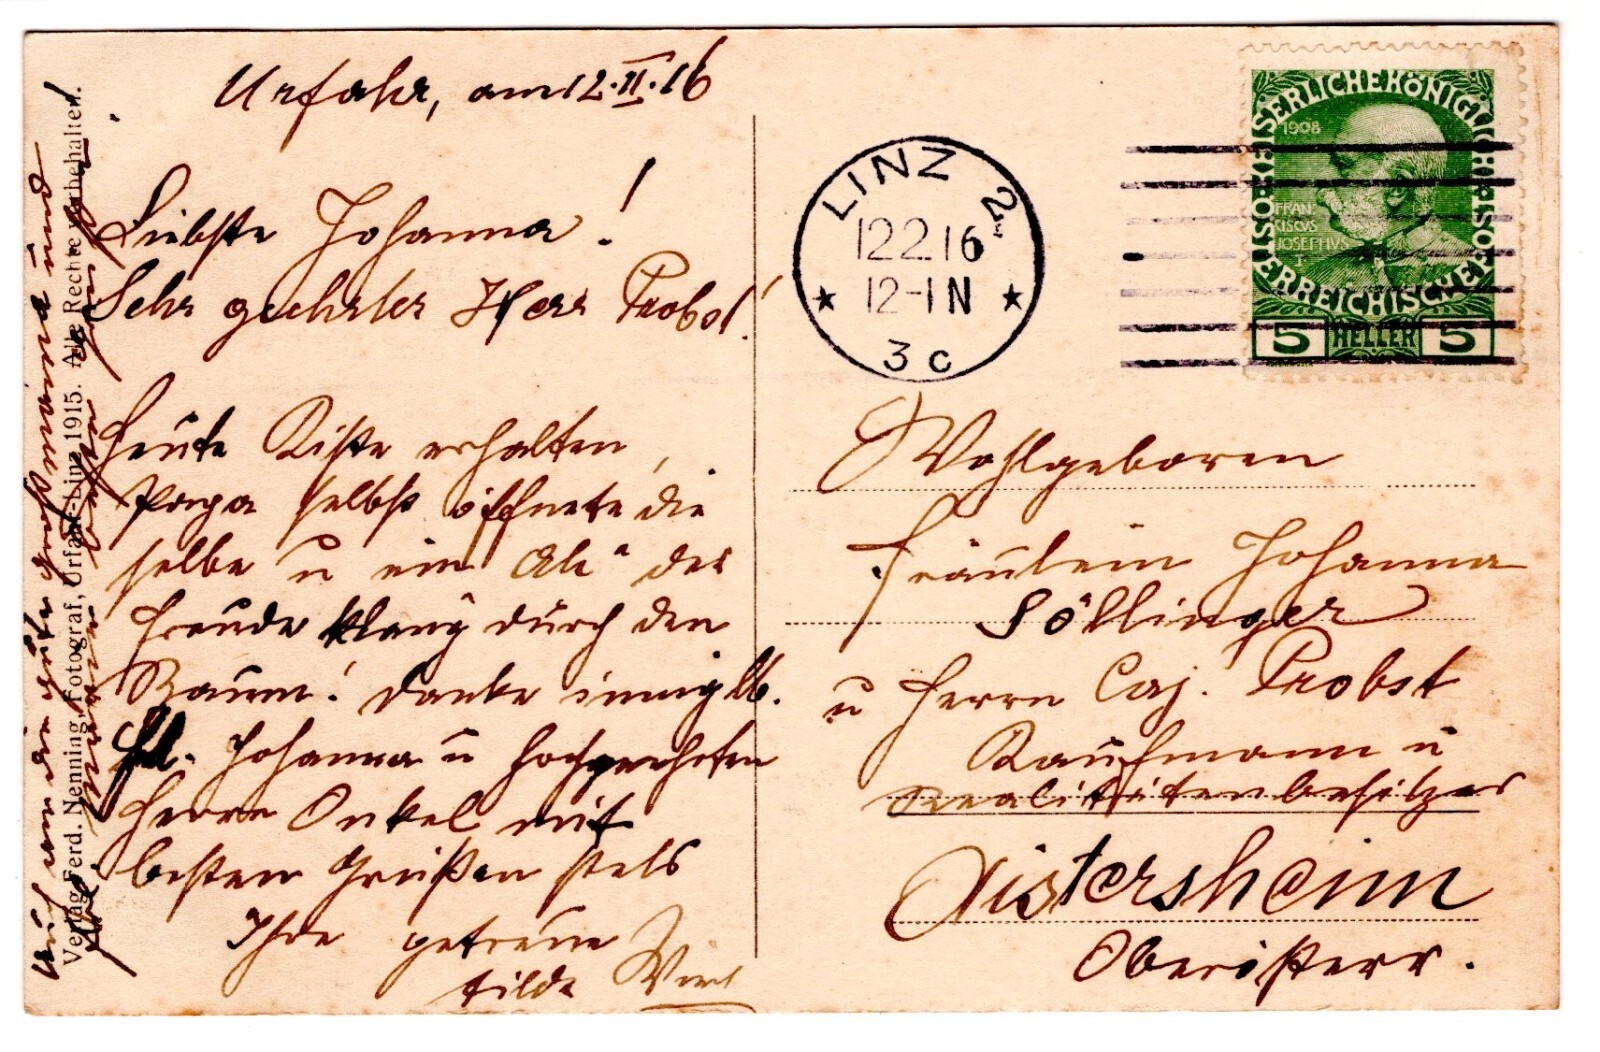 Urfahr, am 12.II.16
Liebste Johanna!
Sehr geehrter Herr Probst!
Heute Kiste erhalten,
Papa selbst öffnete die
selbe u ein „Ah" der
Freude klang durch den
Raum! Danke innig lb.
Frl. Johanna u hochgeehrten
Herrn Onkel mit
besten Grüßen stets
Ihre getreue
Tilde Wirl
Verlag Ferd. Nenning, Fotograf, Urfahr-Linz 1915. Alle Rechte vorbehalten.
LINZ 2
12.2.16
12-1N
3c
KAISERLICHE KÖNIGLICHE ÖSTERREICHISCHE POST
1908
FRAN
CISCUS
JOSEPHVS
I
5 HELLER 5
Wohlgeboren
Fräulein Johanna
Söllinger
u Herrn Caj. Probst
Kaufmann u
Realitätenbesitzer
Gaspoltshofen